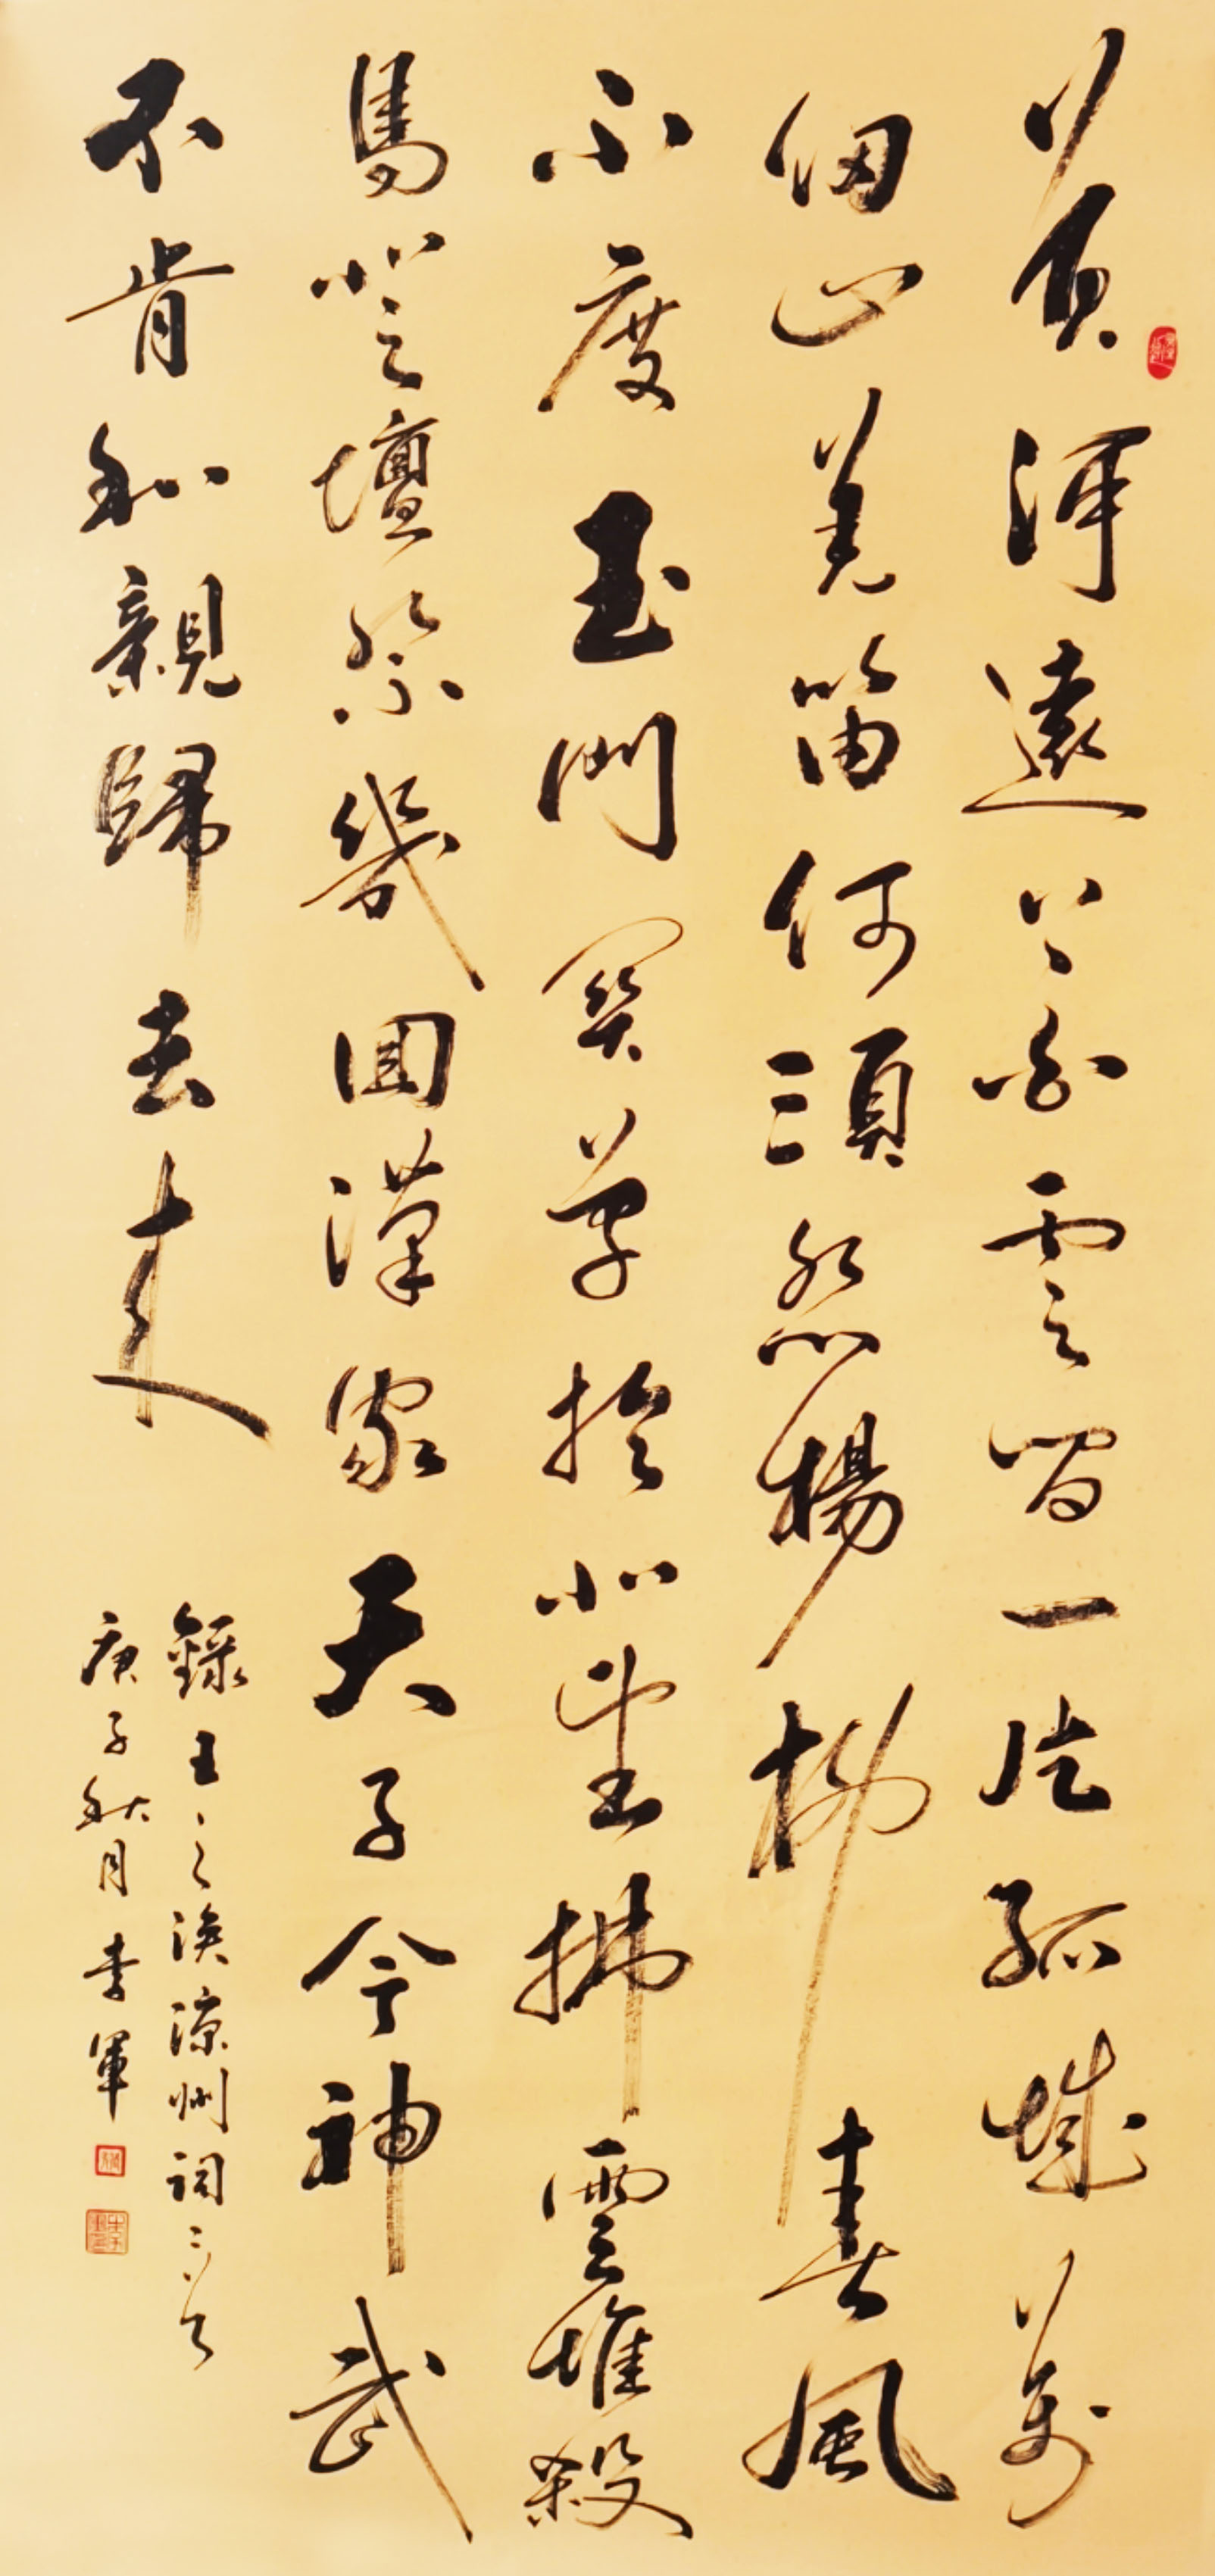 黄河遠上白雲間一片孤城萬
仞山羌笛何須怨楊柳春風
不度玉門関單於北望拂雲堆殺
馬登壇祭幾回漢家天子今神武
不肯和親歸去来
録王之渙涼州詞二首
庚子秋月李軍